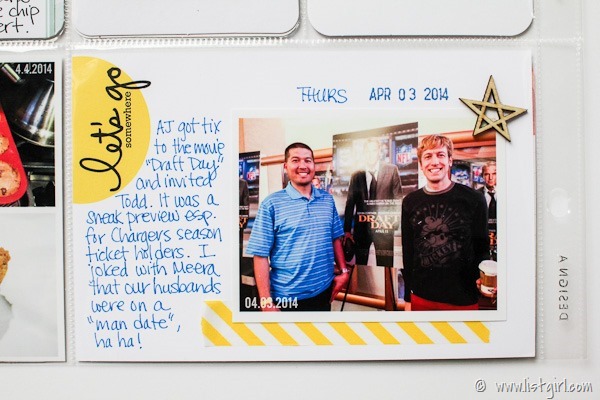 e chip
ert.
4.4.2014
let's go
somewhere
THURS APR 03 2014
AJ got tix
to the movie
"Draft Day"
and invited
Todd. It was a
sneak preview esp.
for Chargers season
ticket holders. I
joked with Meera
that our husbands
were on a
"man date",
ha ha!
NFL
NFL
DRAFT
DAY
04.03.2014
DESIGN A
© www.listgirl.com